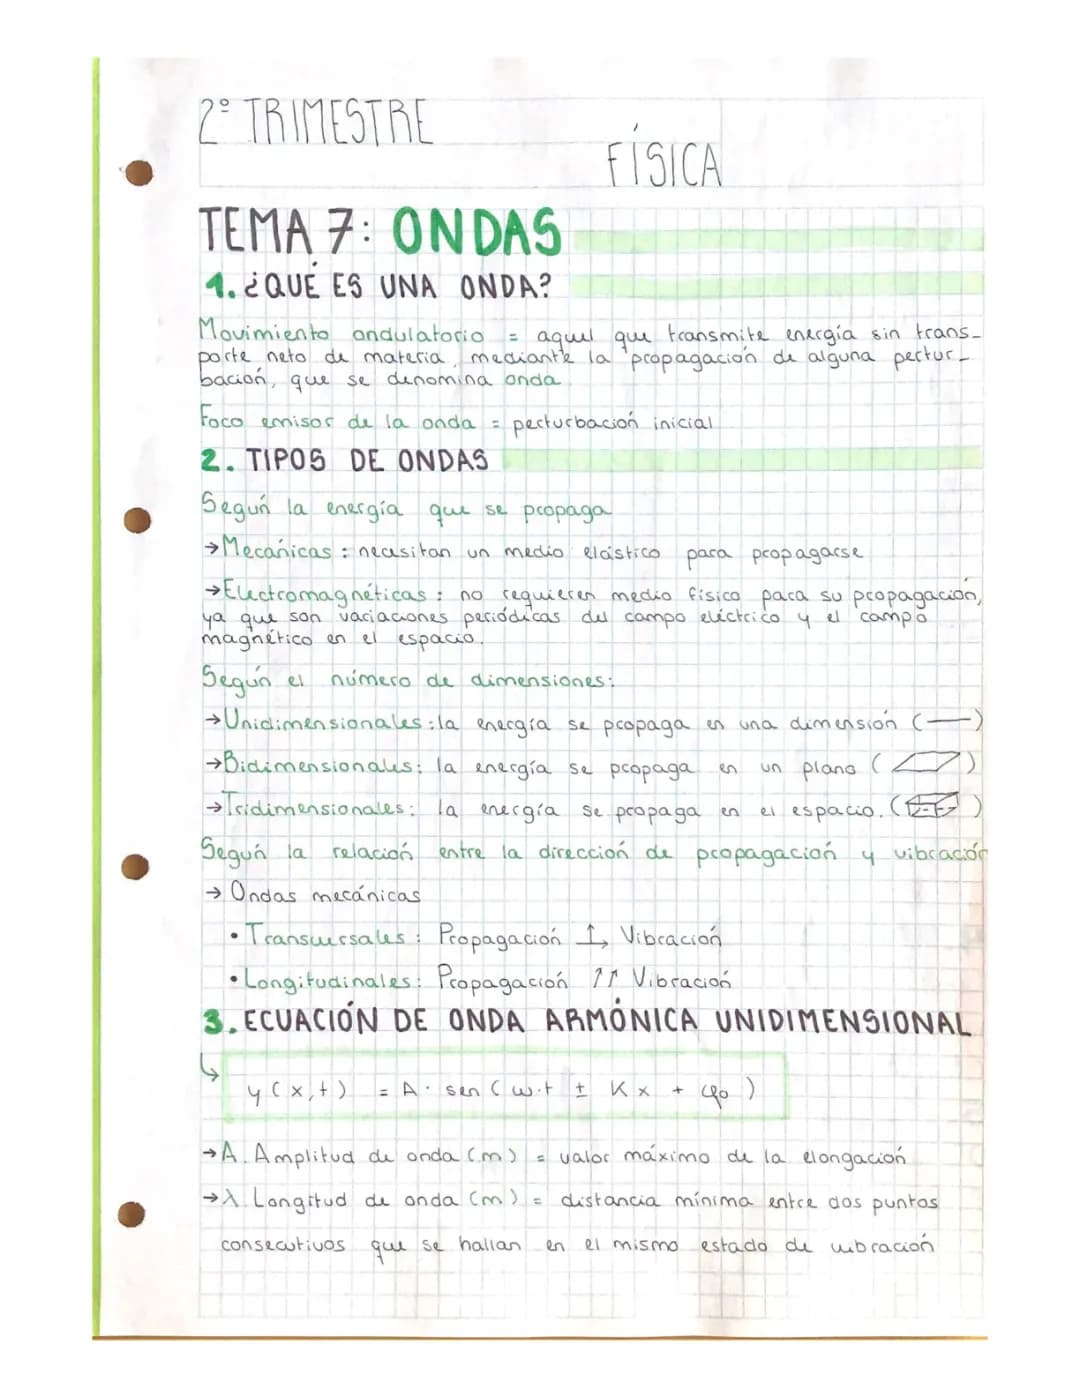 2º TRIMESTRE
FÍSICA
TEMA 7: ONDAS
1. ¿QUÉ ES UNA ONDA?
Movimiento ondulatorio = aquel que transmite energía sin trans-
porte neto de materia, mediante la propagación de alguna pertur-
bación, que se denomina onda
Foco emisor de la onda = perturbación inicial
2. TIPOS DE ONDAS
Según la energía que se propaga
→Mecánicas: necesitan un medio elástico para propagarse
→Electromagnéticas: no requieren medio físico para su propagación,
ya que son variaciones periódicas del campo eléctrico y el campo
magnético en el espacio.
Según el número de dimensiones:
→Unidimensionales: la energía se propaga en una dimensión (—)
→Bidimensionales: la energía se propaga en un plano ( )
→Tridimensionales: la energía se propaga en el espacio. ( )
Según la relación entre la dirección de propagación y vibración
→ Ondas mecánicas
• Transversales: Propagación ⊥, Vibración
• Longitudinales: Propagación ↑↑ Vibración
3. ECUACIÓN DE ONDA ARMÓNICA UNIDIMENSIONAL
↳
y (x,t) = A · sen (w·t ± Kx + φo)
→A. Amplitud de onda (m) = valor máximo de la elongación
→λ. Longitud de onda (m) = distancia mínima entre dos puntos
consecutivos que se hallan en el mismo estado de vibración